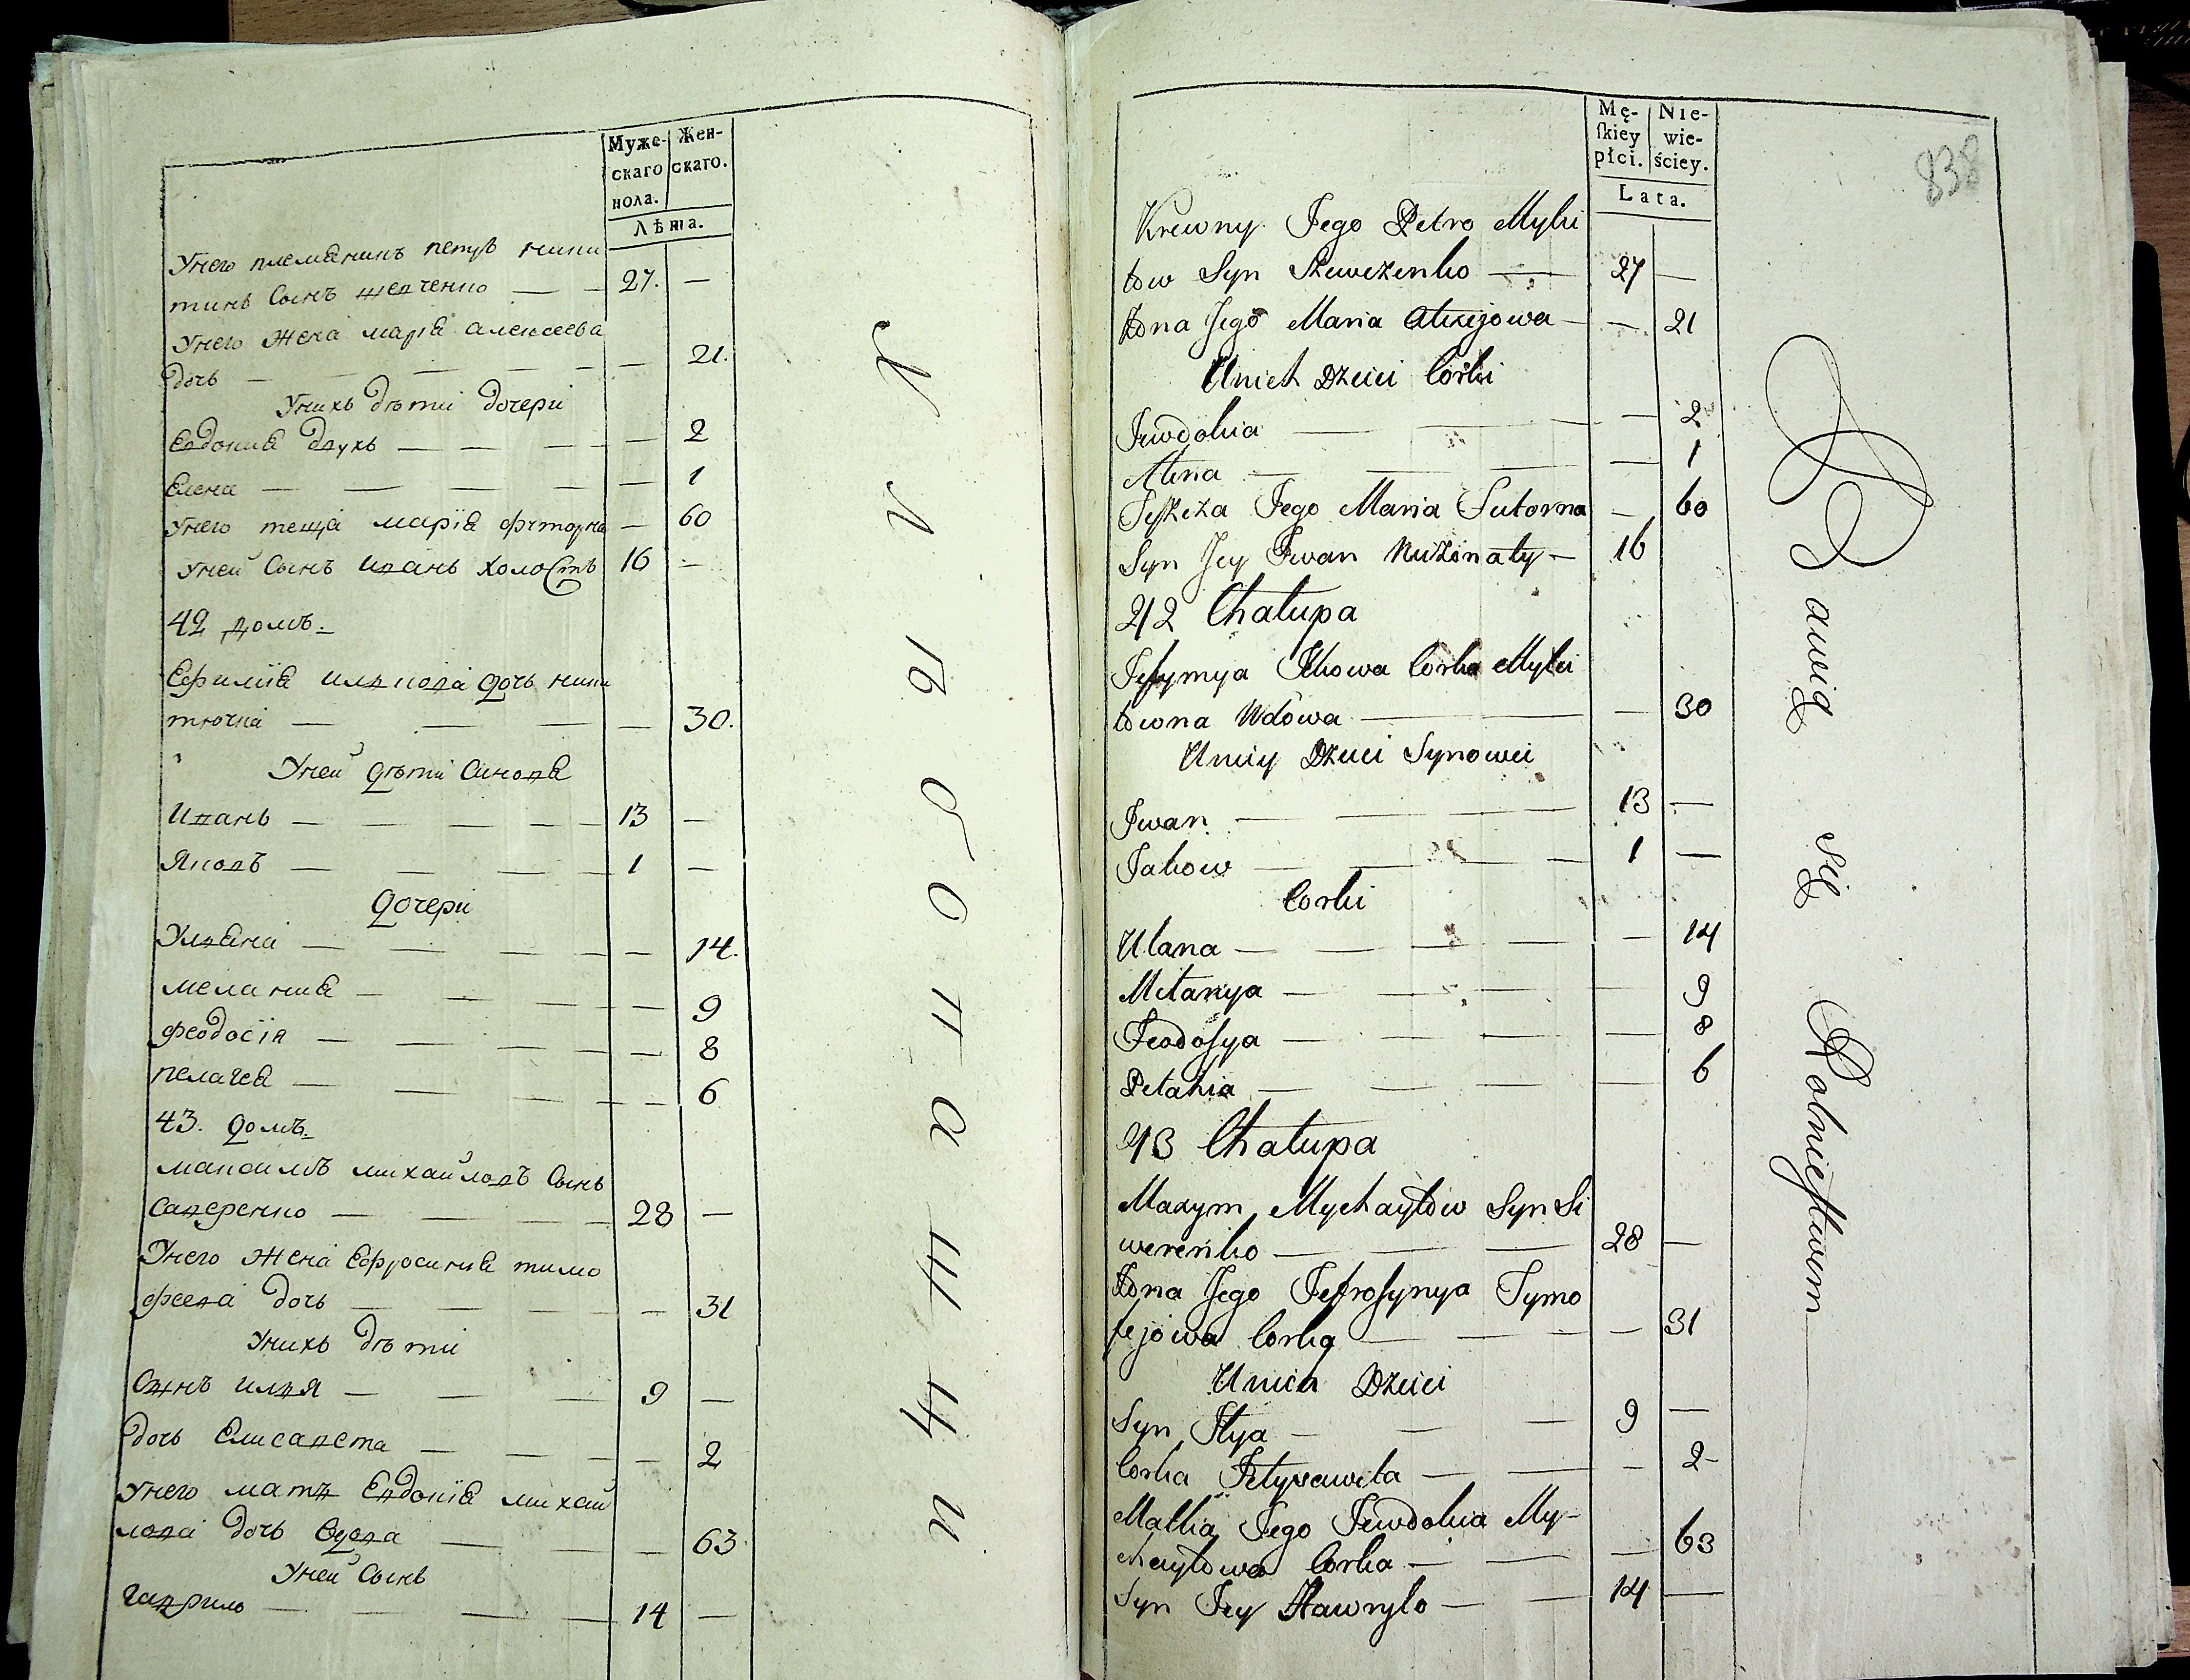 Муже-
скаго
пола.
Жен-
скаго.
Лѣта.
Унего племянинъ петръ ники
тинъ Сынъ шевченко — 27. —
Унего жена марія алексеева
дочь — — 21.
Унихъ дѣти дочери
Евдокия — — 2
Елена — — 1
Унего теща марія — 60
Уней Сынъ иванъ холостъ 16 —
42 домъ.
Ефимія дочь ники
— — 30.
Уней дѣти Синовя
Иванъ — 13 —
Яковъ — 1 —
Дочери
Уляна — — 14.
мелания — — 9
феодосія — — 8
пелагея — — 6
43. домъ.
максимъ михайловъ Сынъ
Саверенко — 28 —
Унего жена Ефросиния тимо
феева дочь — — 31
Унихъ дѣти
Сынъ илья — 9 —
дочь Елисавета — — 2
Унего мать Евдокія михай
лова дочь вдова — — 63
Уней Сынъ
гаврило — 14 —
838
Mę-
ſkiey
płci.
Nie-
wie-
ściey.
Lata.
Krewny Jego Petro Myki
tow Syn Szewczenko — 27 —
Żona Jego Maria Alexijowa — — 21
Unich Dzieci Córki
Jewdokia — — 2
Alena — — 1
Teszcza Jego Maria — 60
Syn Jey Iwan Nieżonaty — 16
42 Chałupa
Jefymya Córka Myki
towna Wdowa — — 30
Uniey Dzieci Synowei
Iwan — 13 —
Jakow — 1 —
Corki
Ulana — — 14
Melanya — — 9
Feodosya — — 8
Pelahia — — 6
43 Chałupa
Maxym Mychayłow Syn Si
werenko — 28 —
Żona Jego Jefrosynya Tymo
fejowa Corka — — 31
Unich Dzieci
Syn Ilya — 9 —
Corka Jelysaweta — — 2
Matka Jego Jewdokia My-
chayłowa Corka — — 63
Syn Jey Hawryło — 14 —
Bawią się Rolnictwem